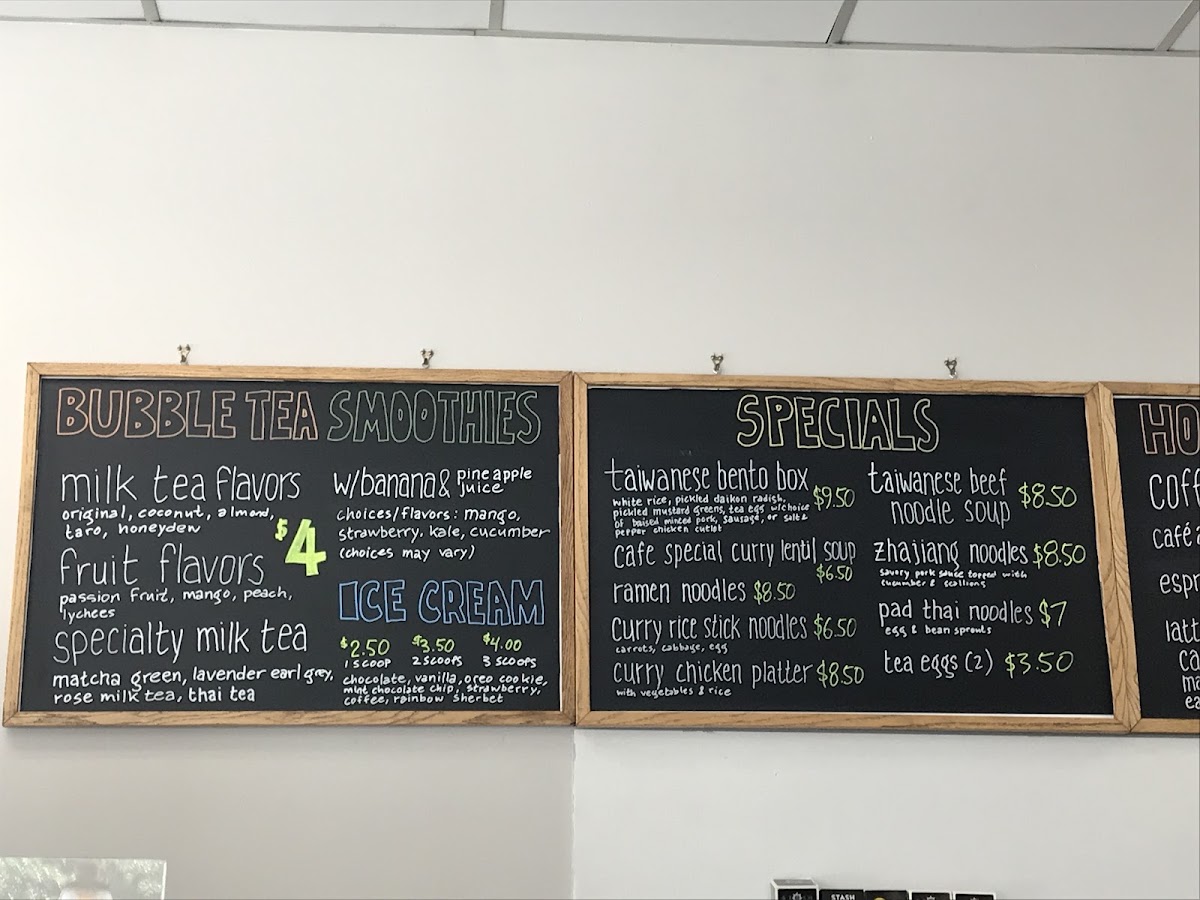 BUBBLE TEA
milk tea flavors
original, coconut, almond,
taro, honeydew
$4
fruit flavors
passion fruit, mango, peach,
lychees
specialty milk tea
matcha green, lavender earl grey,
rose milk tea, thai tea
SMOOTHIES
w/banana & pineapple
juice
choices/flavors: mango,
strawberry, kale, cucumber
(choices may vary)
ICE CREAM
$2.50 $3.50 $4.00
1 SCOOP 2 SCOOPS 3 SCOOPS
chocolate, vanilla, oreo cookie,
mint chocolate chip, strawberry,
coffee, rainbow sherbet
SPECIALS
taiwanese bento box $9.50
white rice, pickled daikon radish,
pickled mustard greens, tea egg w/choice
of baised minced pork, sausage, or salt &
pepper chicken cutlet
cafe special curry lentil soup
$6.50
ramen noodles $8.50
curry rice stick noodles $6.50
carrots, cabbage, egg
curry chicken platter $8.50
with vegetables & rice
taiwanese beef
noodle soup $8.50
zhajiang noodles $8.50
savory pork sauce topped with
cucumber & scallions
pad thai noodles $7
egg & bean sprouts
tea eggs (2) $3.50
HO
coff
café
espr
latt
ca
ma
ea
STASH